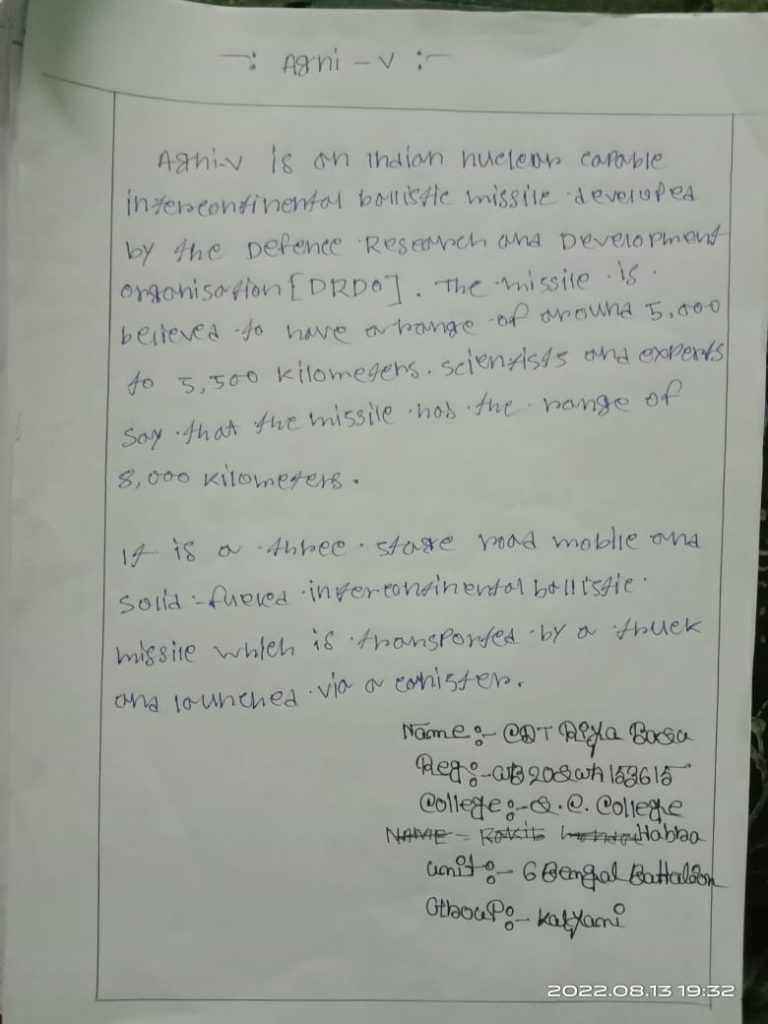 —: Agni - V :—
Agni-V is an Indian nuclear capable
intercontinental ballistic missile developed
by the Defence Research and Development
Organisation [DRDO]. The missile is
believed to have a range of around 5,000
to 5,500 kilometers. scientists and experts
say that the missile has the range of
8,000 kilometers.
It is a three stage road moblie and
solid-fueled intercontinental ballistic
missile which is transported by a truck
and launched via a canister.
Name:- CDT Riya Basu
Reg:- WB20SWA153615
College:- S.C. College
NAME - Rakib Habra
unit:- 6 Bengal Battalion
Group:- Kalyani
2022.08.13 19:32